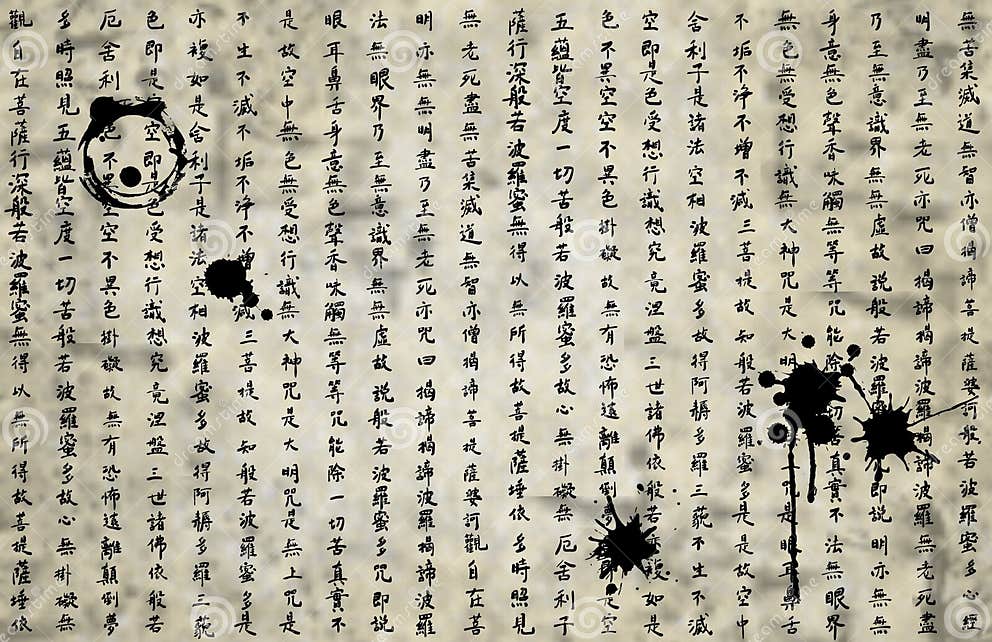 觀自在菩薩行深般若波羅蜜無得以無所得故菩提薩埵依
多時照見五蘊皆空度一切苦般若波羅蜜多故心無掛礙無
厄舍利色不異空空不異色掛礙故無有恐怖遠離顛倒夢
色即是空即是色受想行識想究竟涅盤三世諸佛依般若
亦複如是舍利子是諸法空相波羅蜜多故得阿耨多羅三藐
不生不滅不垢不淨不增減三菩提故知般若波羅蜜多是
是故空中無色無受想行識無大神咒是大明咒是無上咒是
眼耳鼻舌身意無色聲香味觸無等等咒能除一切苦真實不
法無眼界乃至無意識界無無虛故說般若波羅蜜多咒即說
明亦無無明盡乃至無老死亦咒曰揭諦揭諦波羅揭諦波羅
無老死盡無苦集滅道無智亦僧揭諦菩提薩婆訶觀自在菩
薩行深般若波羅蜜無得以無所得故菩提薩埵依多時照見
五蘊皆空度一切苦般若波羅蜜多故心無掛礙無厄舍利子
色不異空空不異色掛礙故無有恐怖遠離顛倒即是空
空即是色受想行識想究竟涅盤三世諸佛依般若複如是
舍利子是諸法空相波羅蜜多故得阿耨多羅三藐不生不滅
不垢不淨不增不減三菩提故知般若波羅蜜多是是故空中
無色無受想行識無大神咒是大明咒是眼耳鼻舌
身意無色聲香味觸無等等咒能除切苦真實不法無眼界
乃至無意識界無無虛故說般若波羅即說明亦無無
明盡乃至無老死亦咒曰揭諦揭諦波羅揭諦波羅無老死盡
無苦集滅道無智亦僧揭諦菩提薩婆訶般若波羅蜜多心經